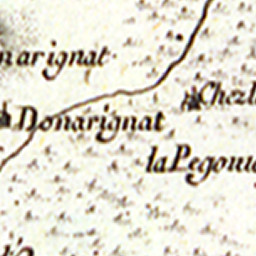 narignat.
Chez
Donarignat
la Pegoni